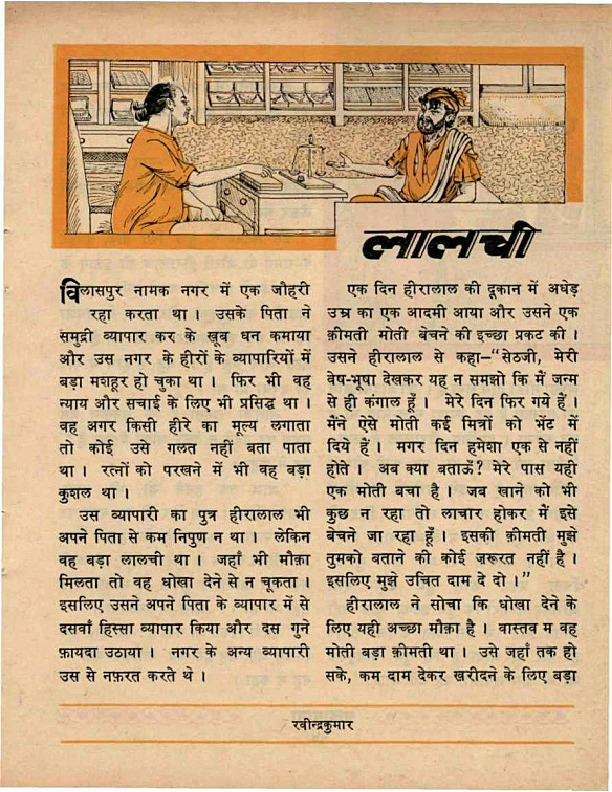 लालची
विलासपुर नामक नगर में एक जौहरी
रहा करता था । उसके पिता ने
समुद्री व्यापार कर के खूब धन कमाया
और उस नगर के हीरों के व्यापारियों में
बड़ा मशहूर हो चुका था । फिर भी वह
न्याय और सचाई के लिए भी प्रसिद्ध था ।
वह अगर किसी हीरे का मूल्य लगाता
तो कोई उसे गलत नहीं बता पाता
था । रत्नों को परखने में भी वह बड़ा
कुशल था ।
उस व्यापारी का पुत्र हीरालाल भी
अपने पिता से कम निपुण न था । लेकिन
वह बड़ा लालची था । जहाँ भी मौक़ा
मिलता तो वह धोखा देने से न चूकता ।
इसलिए उसने अपने पिता के व्यापार में से
दसवाँ हिस्सा व्यापार किया और दस गुने
फ़ायदा उठाया । नगर के अन्य व्यापारी
उस से नफ़रत करते थे ।
एक दिन हीरालाल की दूकान में अधेड़
उम्र का एक आदमी आया और उसने एक
क़ीमती मोती बेचने की इच्छा प्रकट की ।
उसने हीरालाल से कहा–“सेठजी, मेरी
वेष-भूषा देखकर यह न समझो कि मैं जन्म
से ही कंगाल हूँ । मेरे दिन फिर गये हैं ।
मैंने ऐसे मोती कई मित्रों को भेंट में
दिये हैं । मगर दिन हमेशा एक से नहीं
होते । अब क्या बताऊँ? मेरे पास यही
एक मोती बचा है । जब खाने को भी
कुछ न रहा तो लाचार होकर मैं इसे
बेचने जा रहा हूँ । इसकी क़ीमती मुझे
तुमको बताने की कोई ज़रूरत नहीं है ।
इसलिए मुझे उचित दाम दे दो ।”
हीरालाल ने सोचा कि धोखा देने के
लिए यही अच्छा मौक़ा है । वास्तव म वह
मोती बड़ा क़ीमती था । उसे जहाँ तक हो
सके, कम दाम देकर खरीदने के लिए बड़ा
रवीन्द्रकुमार